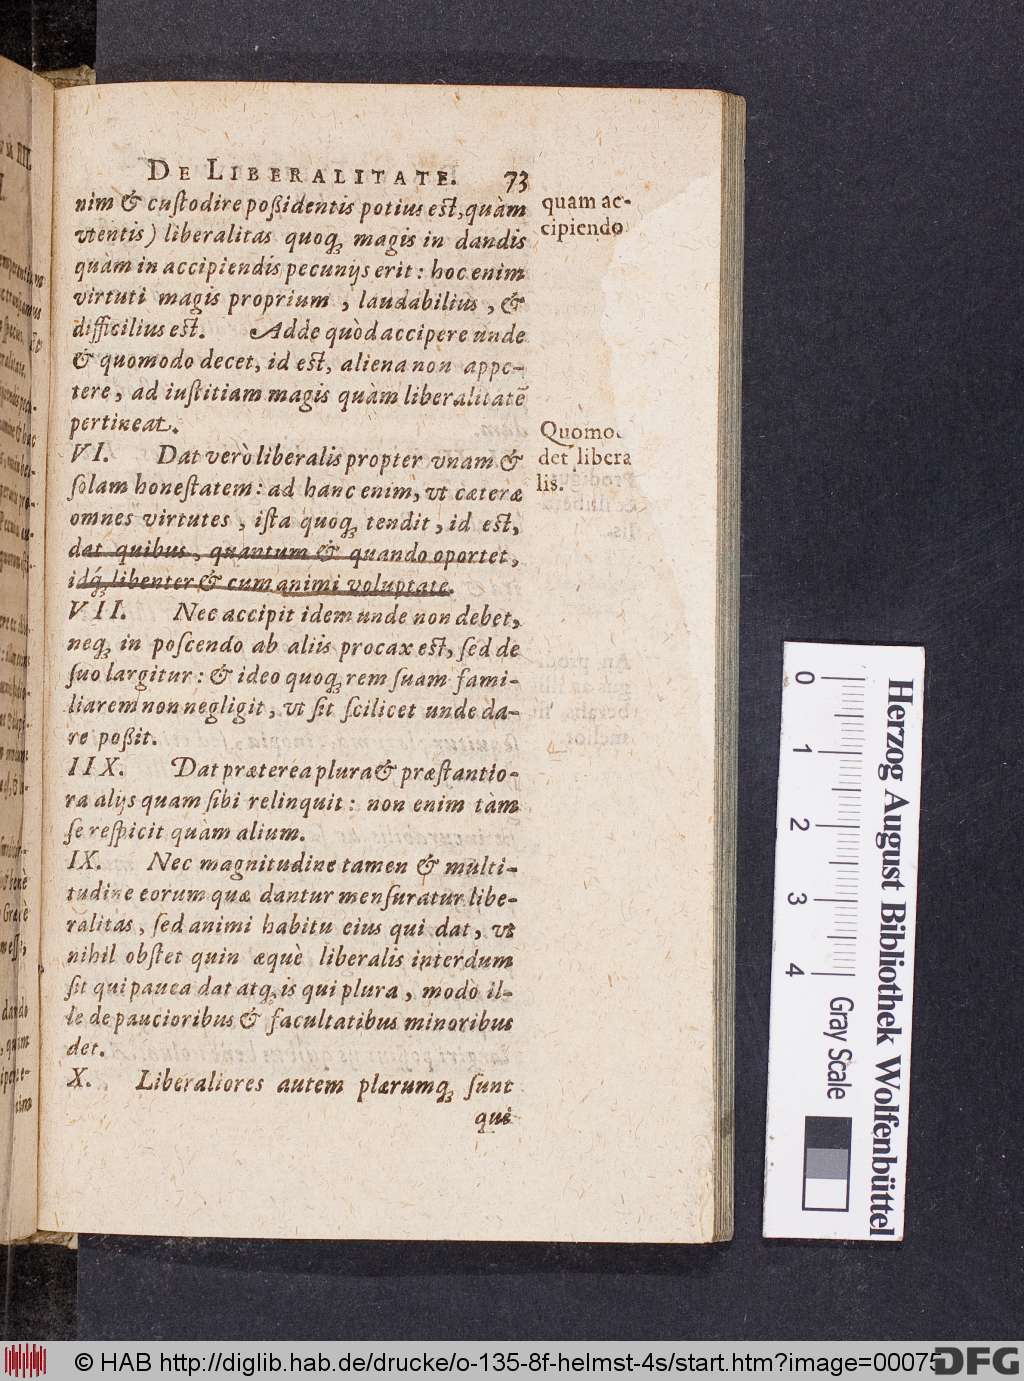 DE LIBERALITATE. 73
nim & cuſtodire poßidentis potius est, quàm
vtentis) liberalitas quoq; magis in dandis
quàm in accipiendis pecunijs erit: hoc enim
virtuti magis proprium, laudabilius, &
difficilius est. Adde quòd accipere unde
& quomodo decet, id est, aliena non appe-
tere, ad iuſtitiam magis quàm liberalitatē
pertineat.
quam ac-
cipiendo
VI. Dat verò liberalis propter vnam &
ſolam honeſtatem: ad hanc enim, vt cæteræ
omnes virtutes, iſta quoq; tendit, id est,
dat quibus, quantum & quando oportet,
idq́; libenter & cum animi voluptate.
Quomo
det libera
lis.
VII. Nec accipit idem unde non debet,
neq; in poſcendo ab aliis procax est, ſed de
ſuo largitur: & ideo quoq; rem ſuam fami-
liarem non negligit, vt ſit ſcilicet unde da-
re poßit.
IIX. Dat præterea plura & præſtantio-
ra alijs quam ſibi relinquit: non enim tàm
ſe reſpicit quàm alium.
IX. Nec magnitudine tamen & multi-
tudine eorum quæ dantur menſuratur libe-
ralitas, ſed animi habitu eius qui dat, vt
nihil obſtet quin æquè liberalis interdum
ſit qui pauca dat atq; is qui plura, modò il-
le de paucioribus & facultatibus minoribus
det.
X. Liberaliores autem plærumq; ſunt
qui
0 1 2 3 4
Gray Scale
Herzog August Bibliothek Wolfenbüttel
© HAB http://diglib.hab.de/drucke/o-135-8f-helmst-4s/start.htm?image=00075
DFG